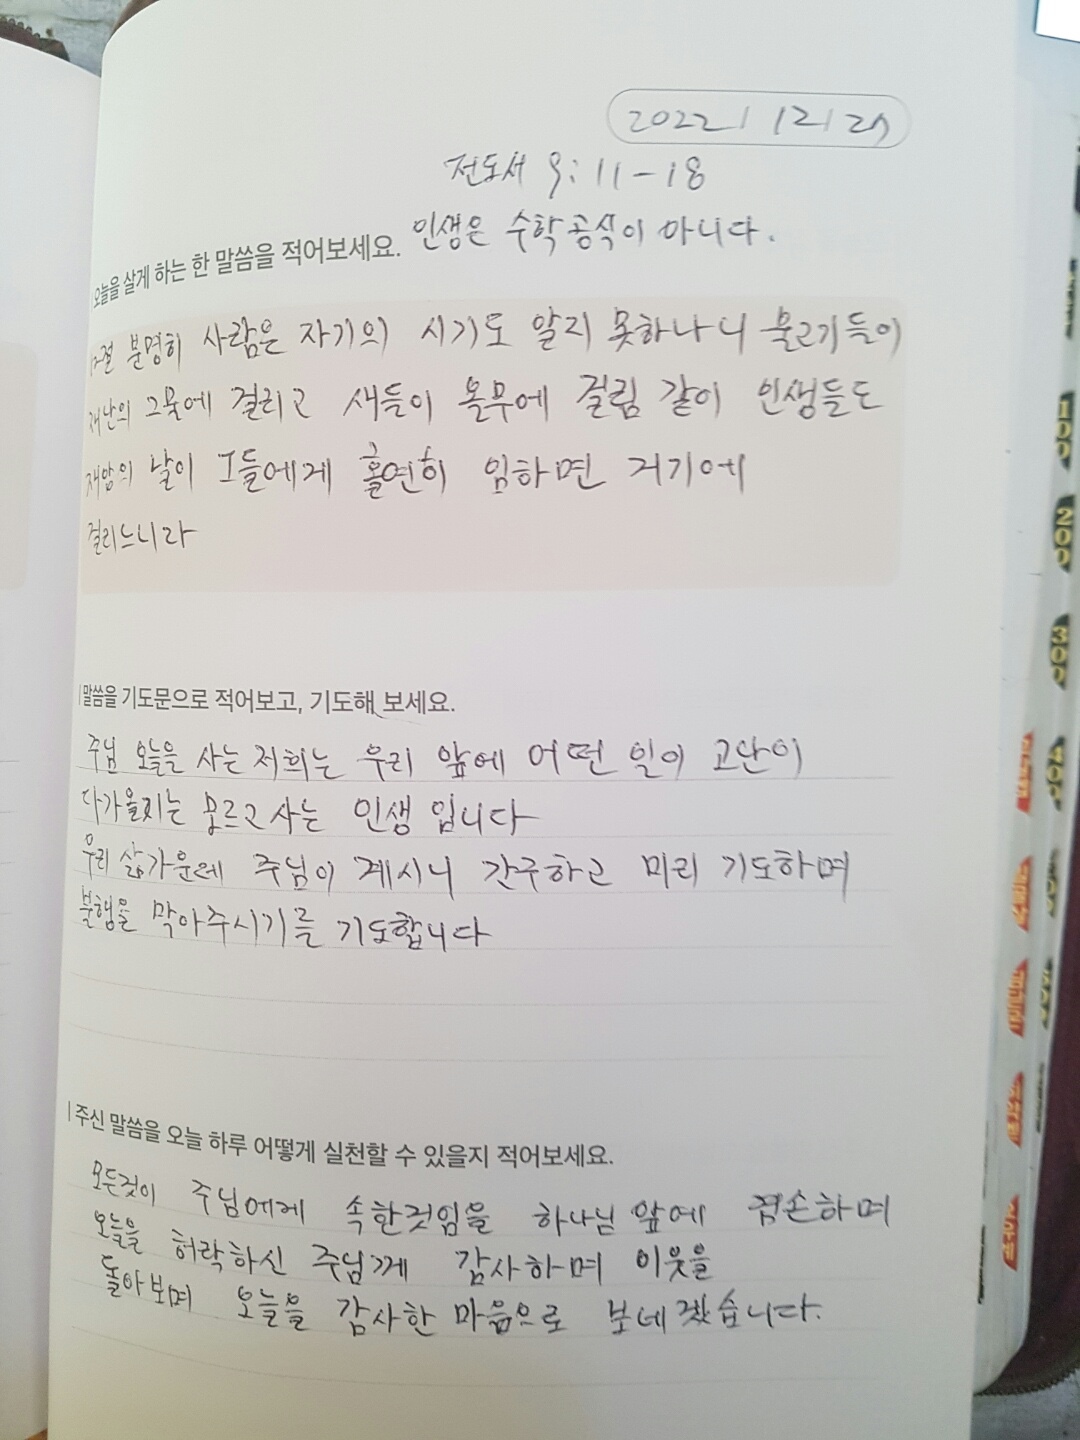 2022 / 12 /
전도서 9:11-18
인생은 수학공식이 아니다.
오늘을 살게 하는 한 말씀을 적어보세요.
12절 분명히 사람은 자기의 시기도 알지 못하나니 물고기들이
재난의 그물에 걸리고 새들이 올무에 걸림 같이 인생들도
재앙의 날이 그들에게 홀연히 임하면 거기에
걸리느니라
말씀을 기도문으로 적어보고, 기도해 보세요.
주님 오늘을 사는 저희는 우리 앞에 어떤 일이 고난이
다가올지는 모르고 사는 인생 입니다
우리 삶가운데 주님이 계시니 간구하고 미리 기도하며
불행을 막아주시기를 기도합니다
주신 말씀을 오늘 하루 어떻게 실천할 수 있을지 적어보세요.
모든것이 주님에게 속한것임을 하나님 앞에 겸손하며
오늘을 허락하신 주님께 감사하며 이웃을
돌아보며 오늘을 감사한 마음으로 보네겠습니다.
100
200
300
400